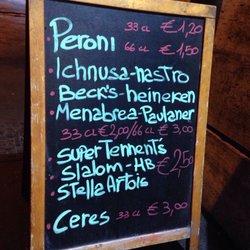 Peroni 33 CL € 1,20
66 CL € 1,50
• Ichnusa-nastro
• Beck's-heineken
• Menabrea-Paulaner
33 CL €2,00/66 CL € 3,00
• Super Tennent's
• Slalom-HB €2,50
• Stella Artois
Ceres 33 CL € 3,00